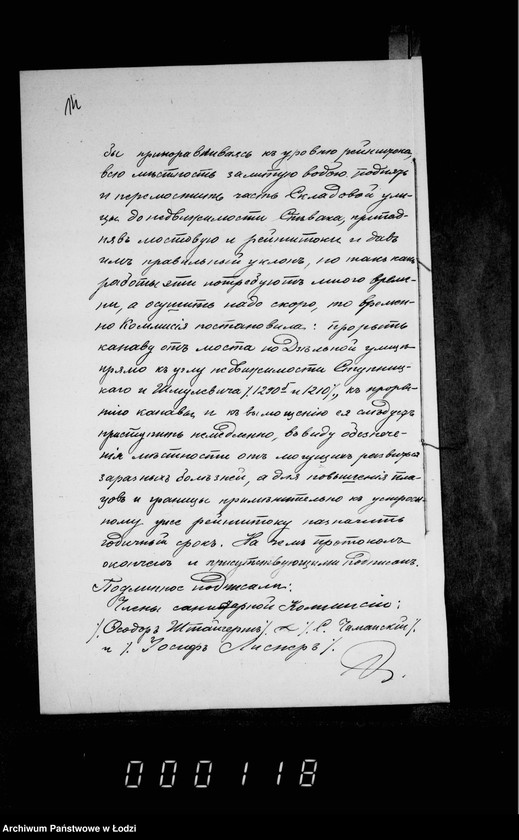 бы приноравливаясь къ уровню рейнштока,
всю мѣстность залитую водою поднять
и перемостить часть Складовой ули-
цы до недвижимости Спѣвака, приподнявъ
мостовую и рейнштоки и давъ
имъ правильный уклонъ, но такъ какъ
работы эти потребуютъ много време-
ни, а осушить надо скоро, то времен-
но Комисія постановила: прорыть
канаву отъ моста по Дзѣльной улицѣ
прямо къ углу недвижимости Ступниц-
каго и Шмулевича /1290 и 1210/, къ проры-
тію канавы, и къ вымощенію ея слѣдуетъ
приступить немедленно, ввиду обезпече-
нія мѣстности отъ могущихъ развиться
заразныхъ болѣзней, а для повышенія пла-
цовъ и границы примѣнительно къ устроен-
ному уже рейнштоку назначить
годичный срокъ. На чемъ протоколъ
оконченъ и присутствующими подписанъ.
Подлинное подписали:
Члены санитарной Коммисіи:
/. Ѳеодоръ Штайгертъ /. /. С. Чаманскій /.
и /. Іосифъ Листеръ /.
0000118
Archiwum Państwowe w Łodzi